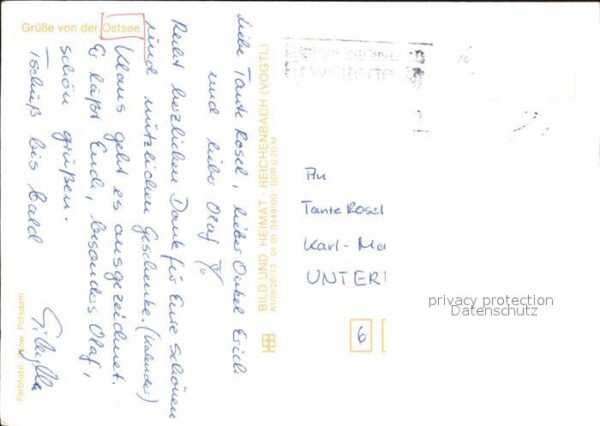 Grüße von der Ostsee
Liebe Tante Rosel, lieber Onkel Erich
und lieber Olaf!
Recht herzlichen Dank für Eure schönen
und nützlichen Geschenke. (Kalender)
Klaus geht es ausgezeichnet.
Er läßt Euch, besonders Olaf,
schön grüßen.
Tschüß bis bald
Farbfoto Potsdam
BILD UND HEIMAT · REICHENBACH (VOGTL)
DDR 0,20 M
An
Tante Rosel
Karl-Ma
UNTER
6
privacy protection
Datenschutz